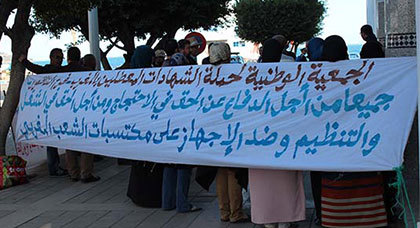 الجمعية الوطنية لحملة الشهادات المعطلين بالمغرب
جميعا من أجل الدفاع عن الحق في الاحتجاج ومن أجل الحق في التشغيل
والتنظيم وضد الإجهاز على مكتسبات الشعب المغربي